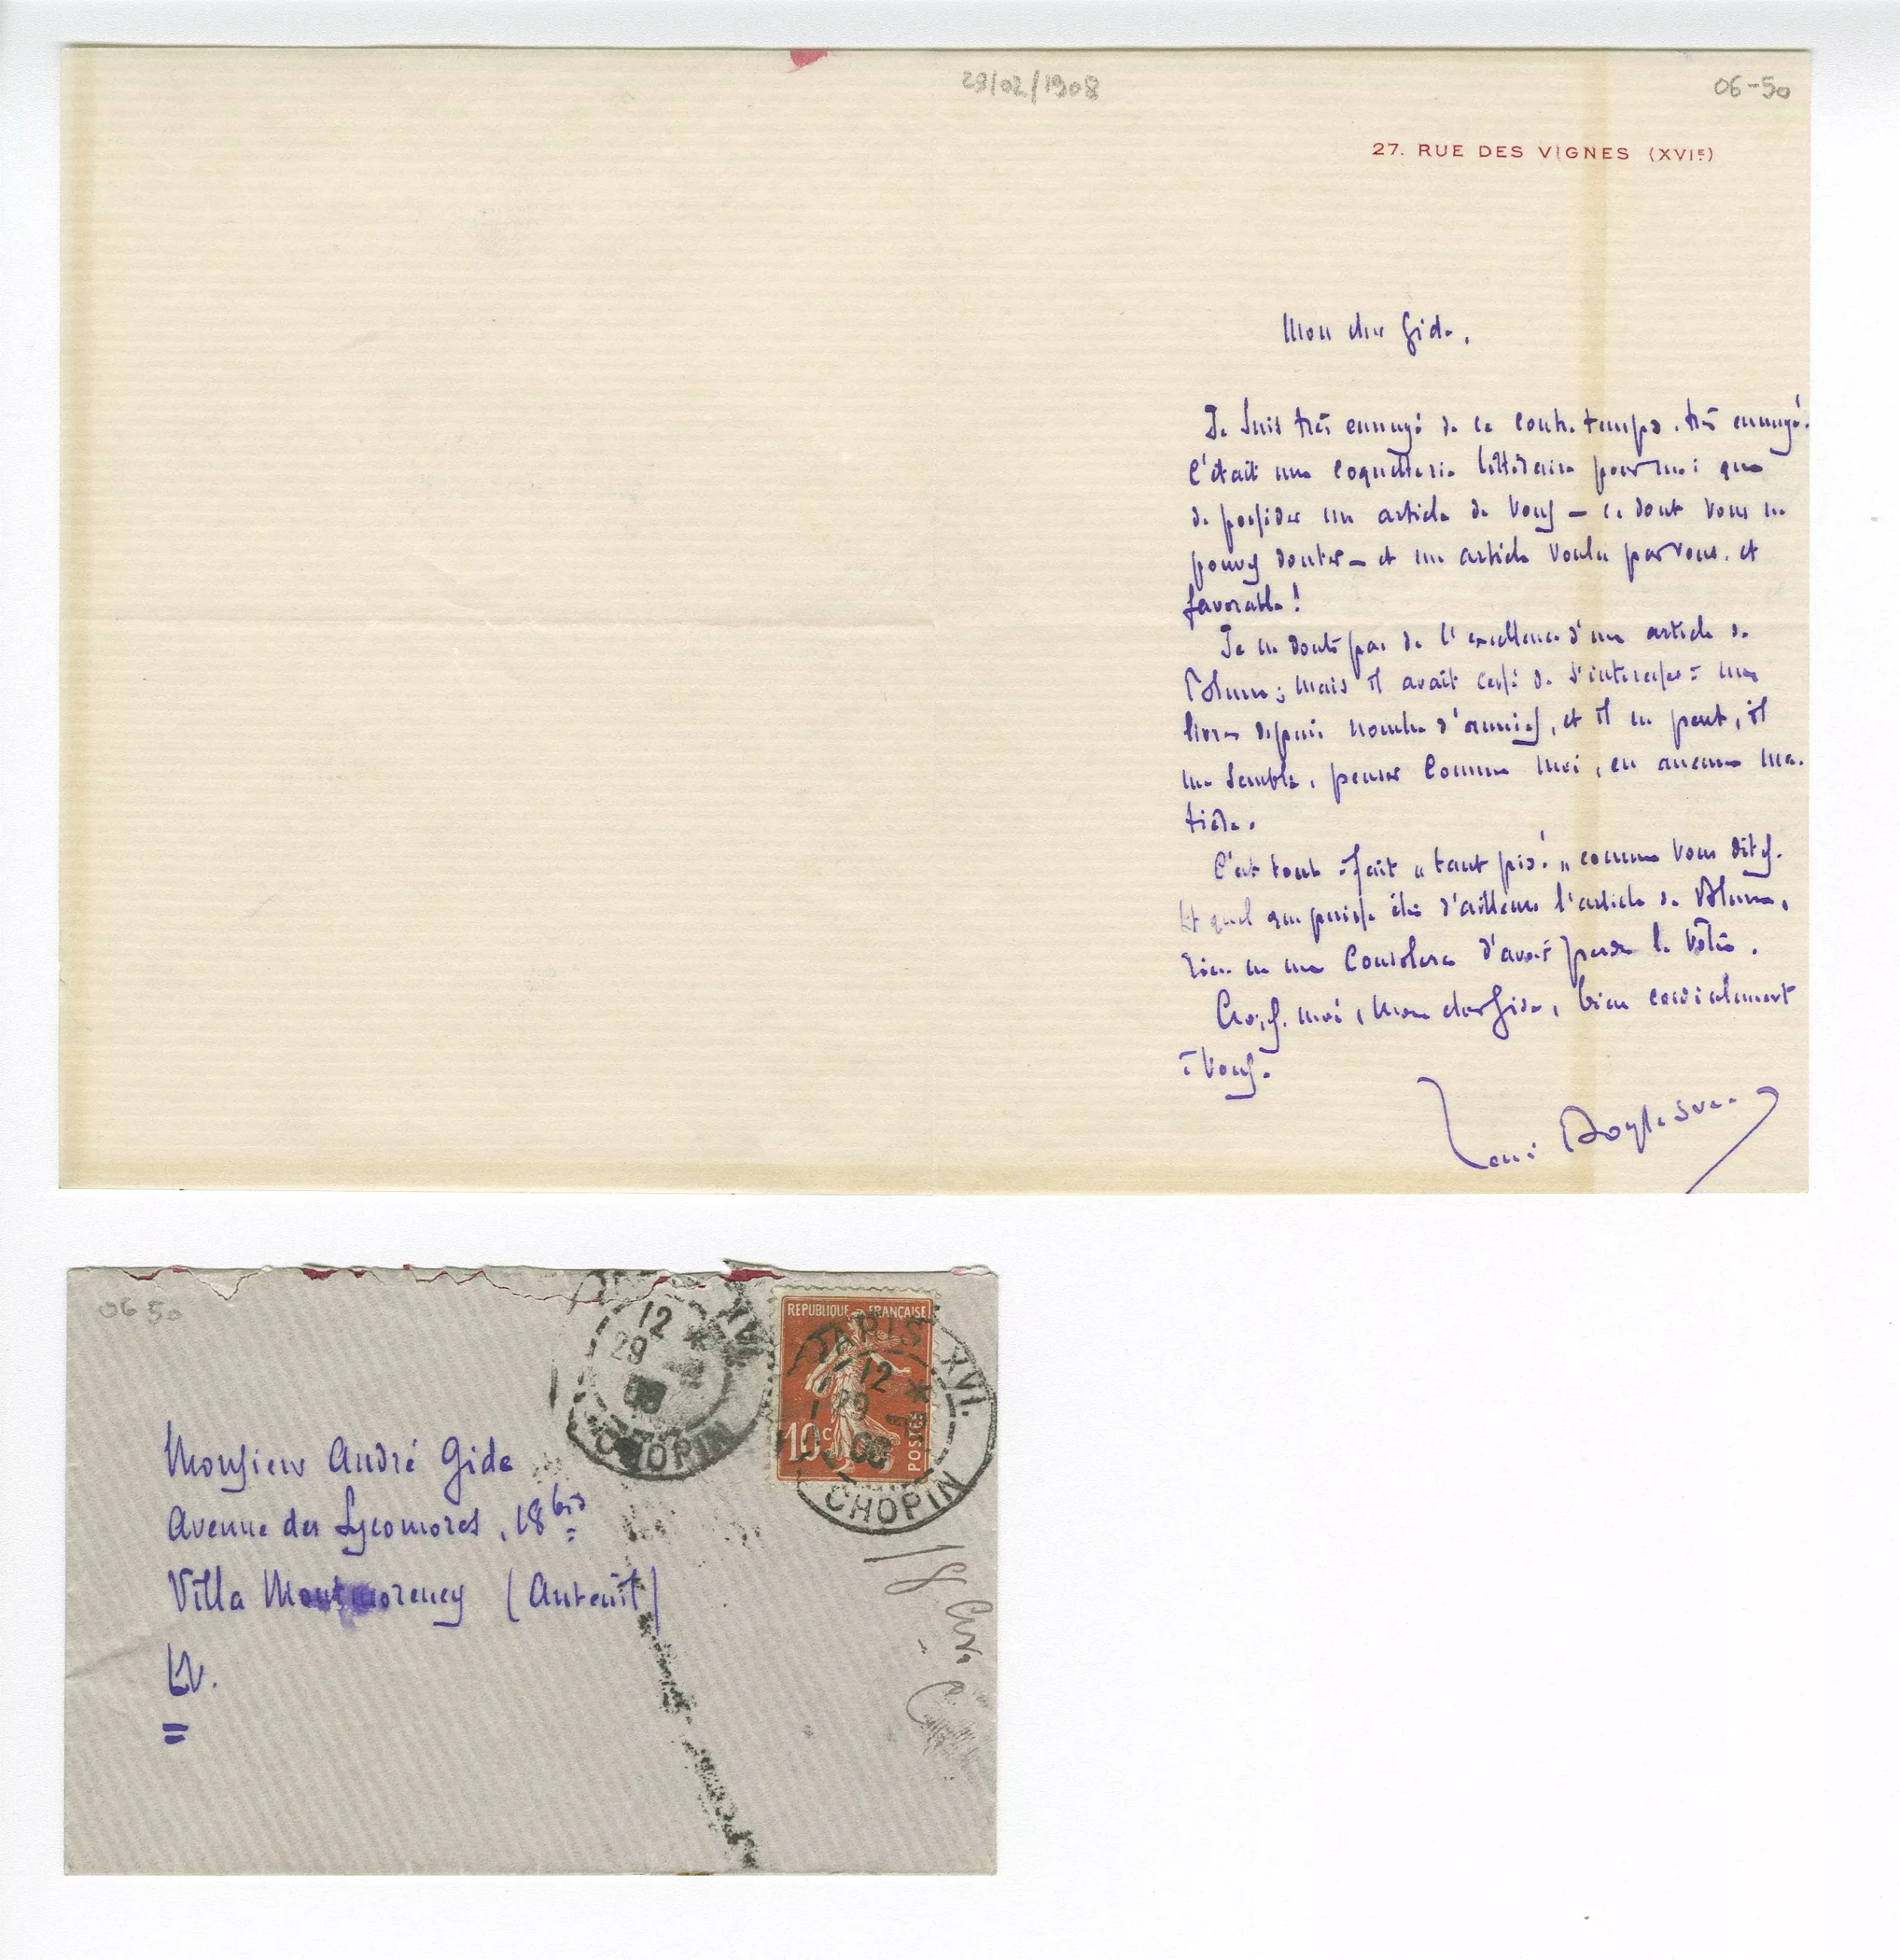 29/02/1908
06-50
27. RUE DES VIGNES (XVIe)
Mon cher Gide,
Je suis très ennuyé de ce contre-temps, très ennuyé.
C'était une coquetterie littéraire pour moi que
de posséder un article de vous — ce dont vous ne
pouvez douter — et un article voulu par vous, et
favorable !
Je ne doute pas de l'excellence d'un article de
Blum ; mais il avait cessé de s'intéresser à mes
livres depuis nombre d'années, et il ne peut, il
me semble, penser comme moi, en aucune ma-
tière.
C'est tout à fait « tant pis ! » comme vous dites.
Et quel que puisse être d'ailleurs l'article de Blum,
rien ne me consolera d'avoir perdu le vôtre.
Croyez-moi, mon cher Gide, bien cordialement
à vous.
René Boylesve
06 50
12
29
08
XVI
CHOPIN
REPUBLIQUE FRANÇAISE
10c
POSTES
PARIS XVI.
12
29
08
CHOPIN
Monsieur André Gide
Avenue des Sycomores, 18 bis
Villa Montmorency (Auteuil)
EV.
18 Av.